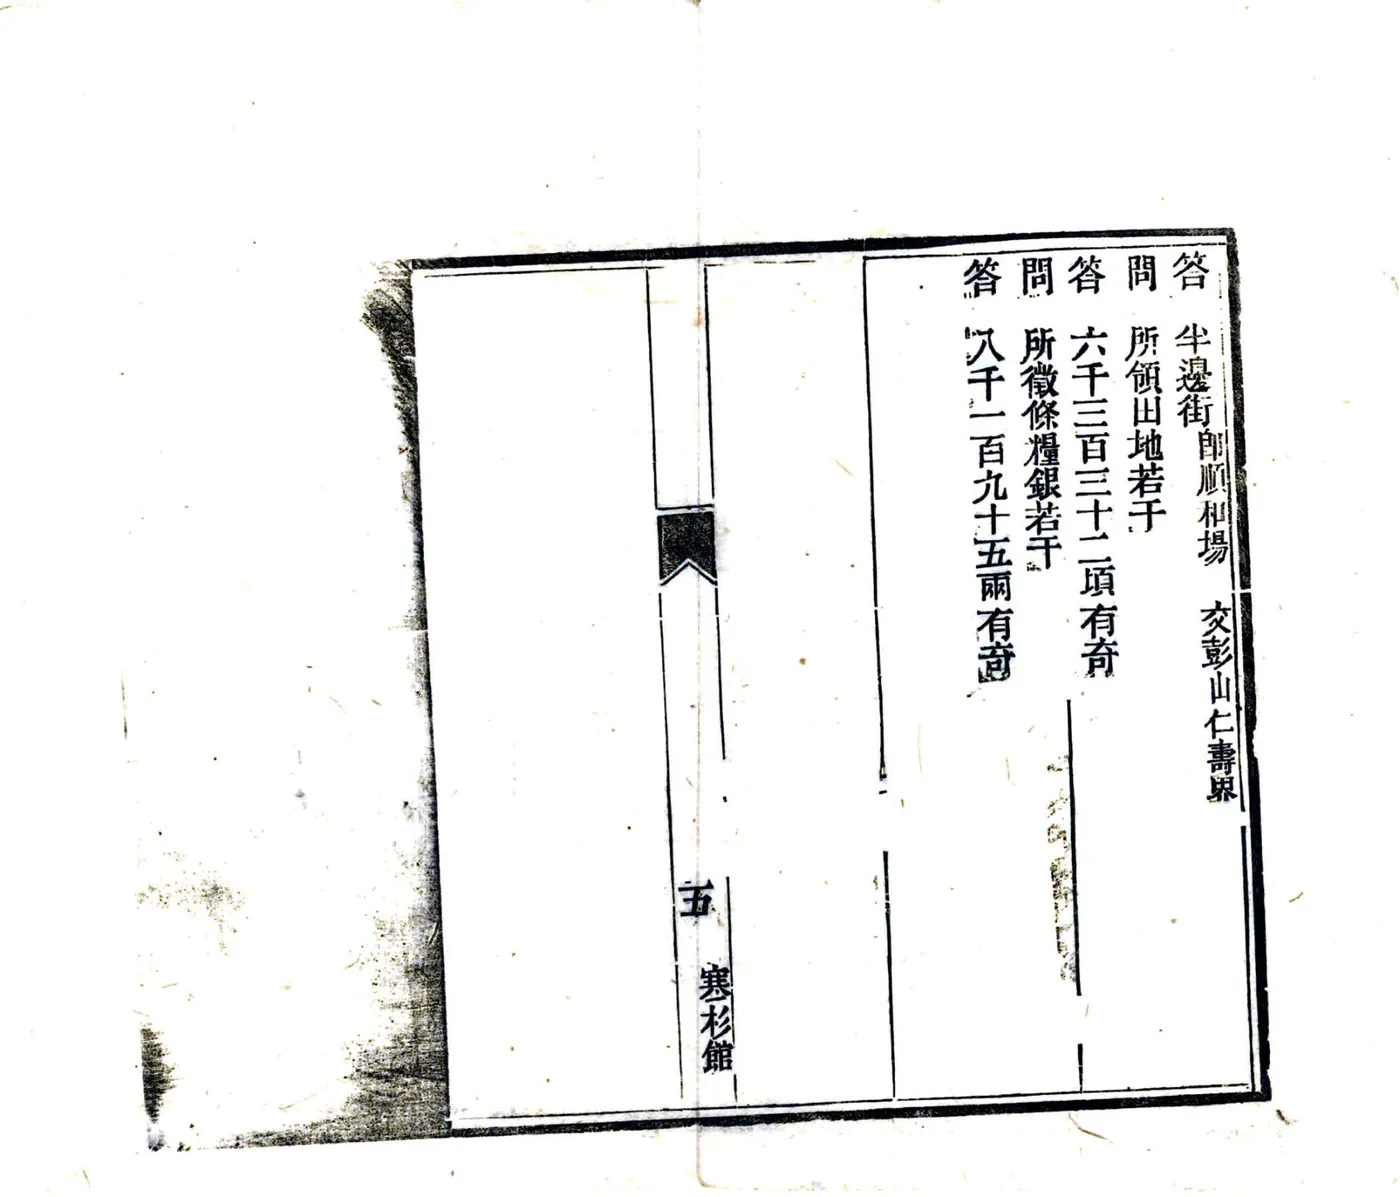 答　半邊街即順和場　交彭山仁壽界
問　所領田地若干
答　六千三百三十二頃有奇
問　所徵條糧銀若干
答　八千一百九十五兩有奇
五　寒杉館